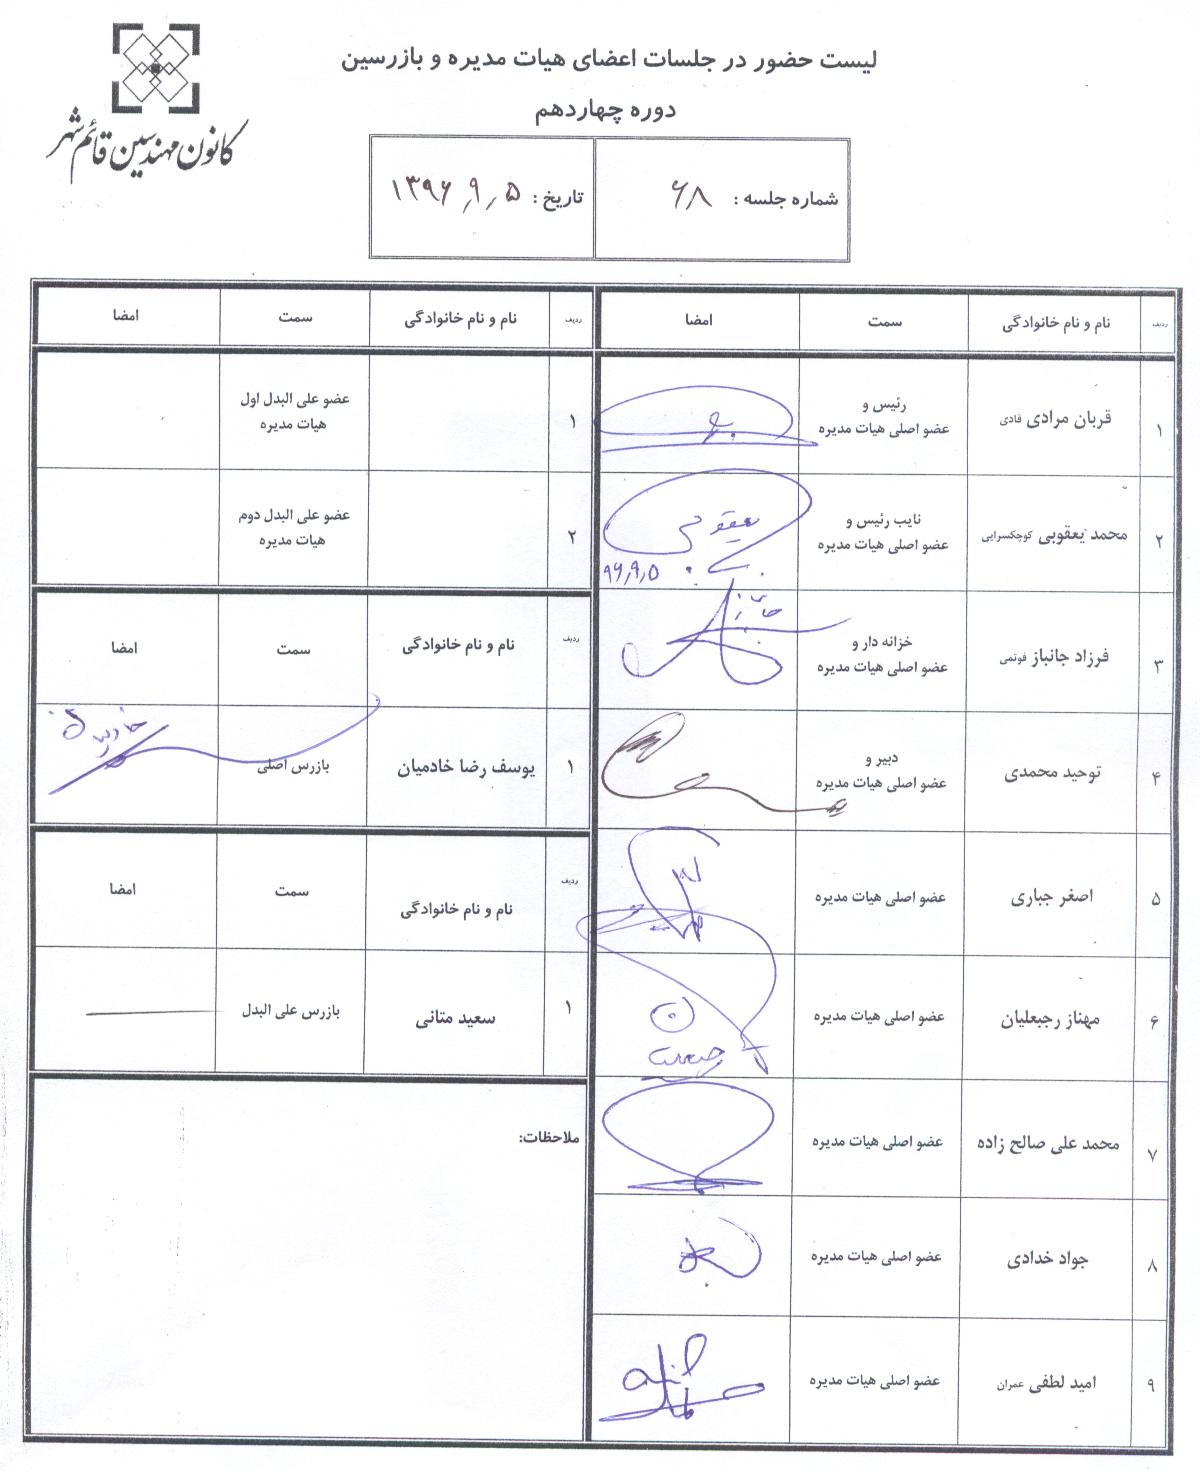 کانون مهندسین قائم شهر
لیست حضور در جلسات اعضای هیات مدیره و بازرسین
دوره چهاردهم
شماره جلسه : ۶۸
تاریخ : ۱۳۹۶/۹/۵
ردیف نام و نام خانوادگی سمت امضا
۱ قربان مرادی قادی رئیس و
عضو اصلی هیات مدیره
۲ محمد یعقوبی کوچکسرایی نایب رئیس و
عضو اصلی هیات مدیره
یعقوبی
۹۶/۹/۵
۳ فرزاد جانباز فوتمی خزانه دار و
عضو اصلی هیات مدیره
۴ توحید محمدی دبیر و
عضو اصلی هیات مدیره
۵ اصغر جباری عضو اصلی هیات مدیره
۶ مهناز رجبعلیان عضو اصلی هیات مدیره
۷ محمد علی صالح زاده عضو اصلی هیات مدیره
۸ جواد خدادی عضو اصلی هیات مدیره
۹ امید لطفی عمران عضو اصلی هیات مدیره
ردیف نام و نام خانوادگی سمت امضا
۱ عضو علی البدل اول
هیات مدیره
۲ عضو علی البدل دوم
هیات مدیره
ردیف نام و نام خانوادگی سمت امضا
۱ یوسف رضا خادمیان بازرس اصلی
ردیف نام و نام خانوادگی سمت امضا
۱ سعید متانی بازرس علی البدل
ملاحظات: